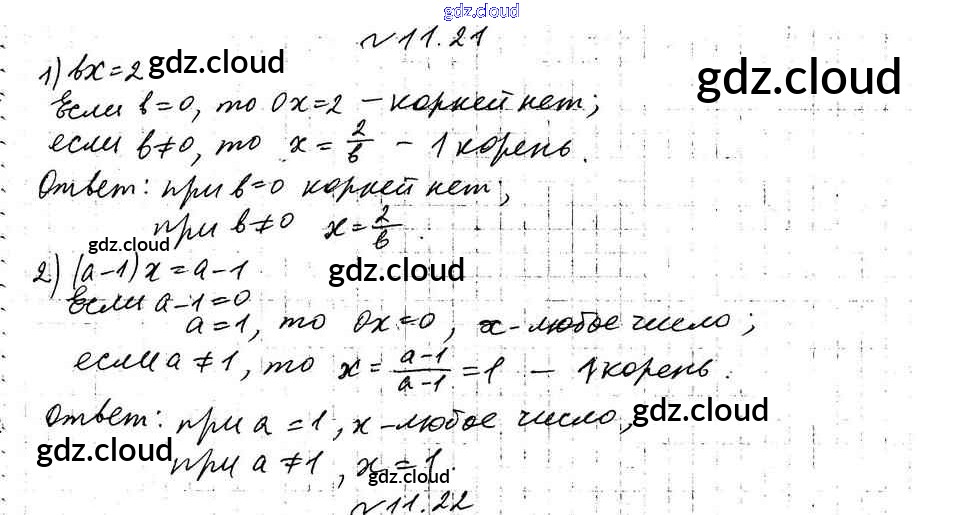 gdz.cloud
№11.21
1) bx=2 gdz.cloud
gdz.cloud
Если b=0, то 0x=2 – корней нет;
если b≠0, то x = 2/b – 1 корень.
Ответ: при b=0 корней нет;
при b≠0 x=2/b.
gdz.cloud
2) (a-1)x=a-1 gdz.cloud
Если a-1=0
a=1, то 0x=0, x-любое число;
если a≠1, то x = a-1/a-1 = 1 – 1 корень.
Ответ: при a=1, x-любое число, gdz.cloud
gdz.cloud
при a≠1, x=1.
gdz.cloud
№11.22